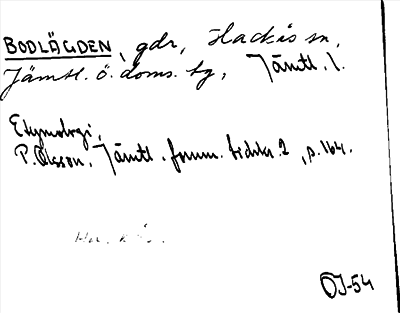 BODLÄGDEN, gdr, Hackås sn,
Jämtl. ö. doms. tg, Jämtl. l.
Etymologi,
P. Olsson. Jämtl. fornm. tidskr. 2, p. 164.
OJ-54